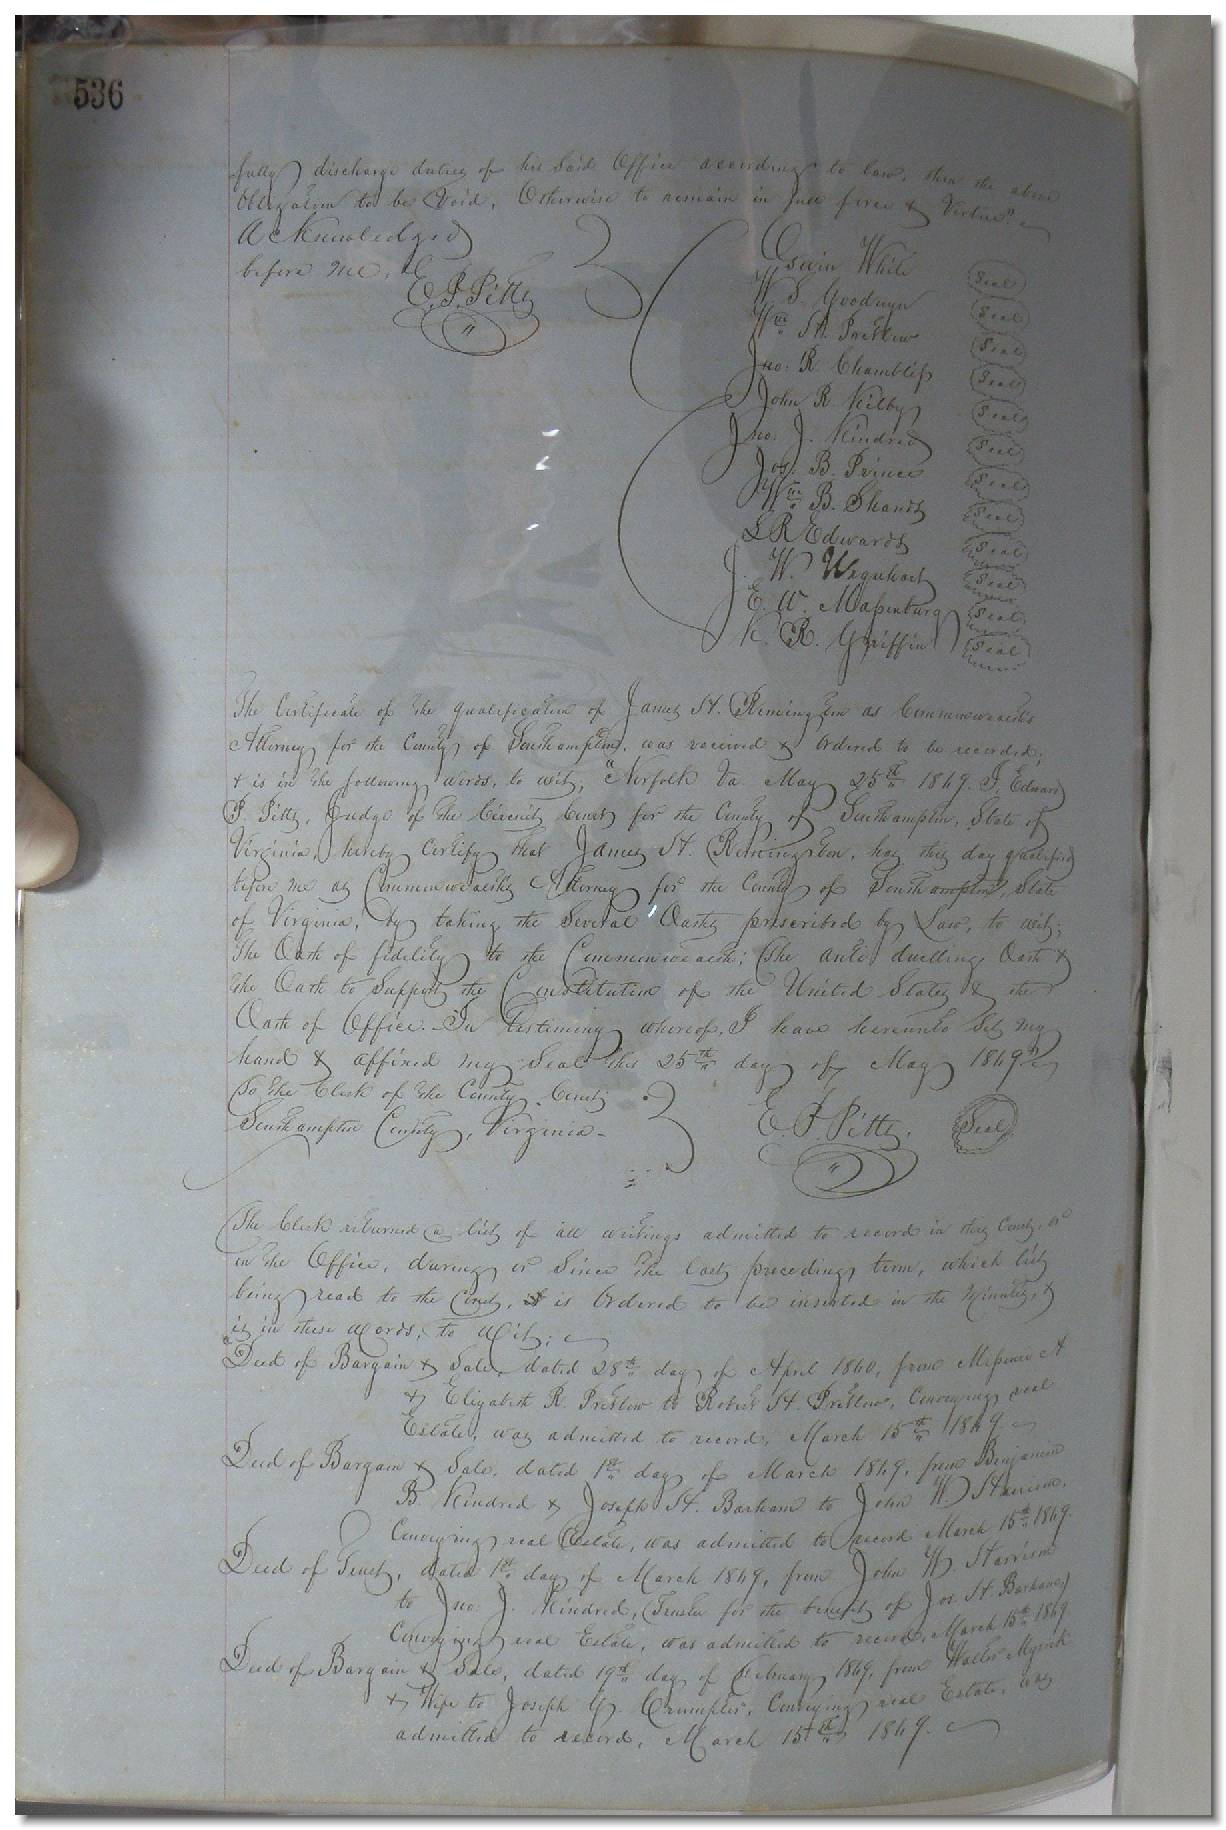 536
fully discharge duties of his said Office according to law, then the above
Obligation to be Void, Otherwise to remain in full force & Virtue."
Acknowledged
before me,
E. P. Pitts
Edwin White Seal
W S. Goodwyn Seal
Wm H. Pretlow Seal
Jno: R. Chambliss Seal
John R. Kilby Seal
Jno. J. Kindred Seal
Jos: B. Prince Seal
Wm B. Shands Seal
L R Edwards Seal
J. W. Urquhart Seal
E. W. Massenburg Seal
K. R. Griffin Seal
The Certificate of the qualification of James H. Remington as Commonwealths
Attorney for the County of Southampton, was received & Ordered to be recorded;
& is in the following words, to wit; "Norfolk Va. May 25th 1869. I, Edward
P. Pitts, Judge of the Circuit Court for the County of Southampton, State of
Virginia, hereby Certify that James H. Remington, has this day qualified
before me as Commonwealths Attorney for the County of Southampton, State
of Virginia, by taking the Several Oaths prescribed by Law, to wit;
The Oath of fidelity to the Commonwealth; The anti duelling Oath &
the Oath to Support the Constitution of the United States & the
Oath of Office. In testimony whereof, I have hereunto Set my
hand & affixed my Seal this 25th day of May 1869."
To the Clerk of the County Court
Southampton County, Virginia.
E. P. Pitts. Seal
The Clerk returned a list of all writings admitted to record in this Court, or
in the Office, during or Since the last preceding term, which list
being read to the Court, it is Ordered to be inserted in the Minutes, &
is in these words; to wit;
Deed of Bargain & Sale, dated 28th day of April 1860, from A
& Elizabeth R. Pretlow to Robert H. Pretlow, Conveying real
Estate, was admitted to record, March 15th 1869.
Deed of Bargain & Sale, dated 1st day of March 1869, from Benjamin
B. Kindred & Joseph H. Barham to John W. Harrison,
Conveying real Estate, was admitted to record March 15th 1869.
Deed of Trust, dated 1st day of March 1869, from John W. Harrison
to Jno. J. Kindred, Trustee for the benefit of Jos H. Barham,
Conveying real Estate, was admitted to record, March 15th 1869.
Deed of Bargain & Sale, dated 19th day of February 1869, from Walter Myrick
& Wife to Joseph G. Crumpler, Conveying real Estate, was
admitted to record, March 15th 1869.